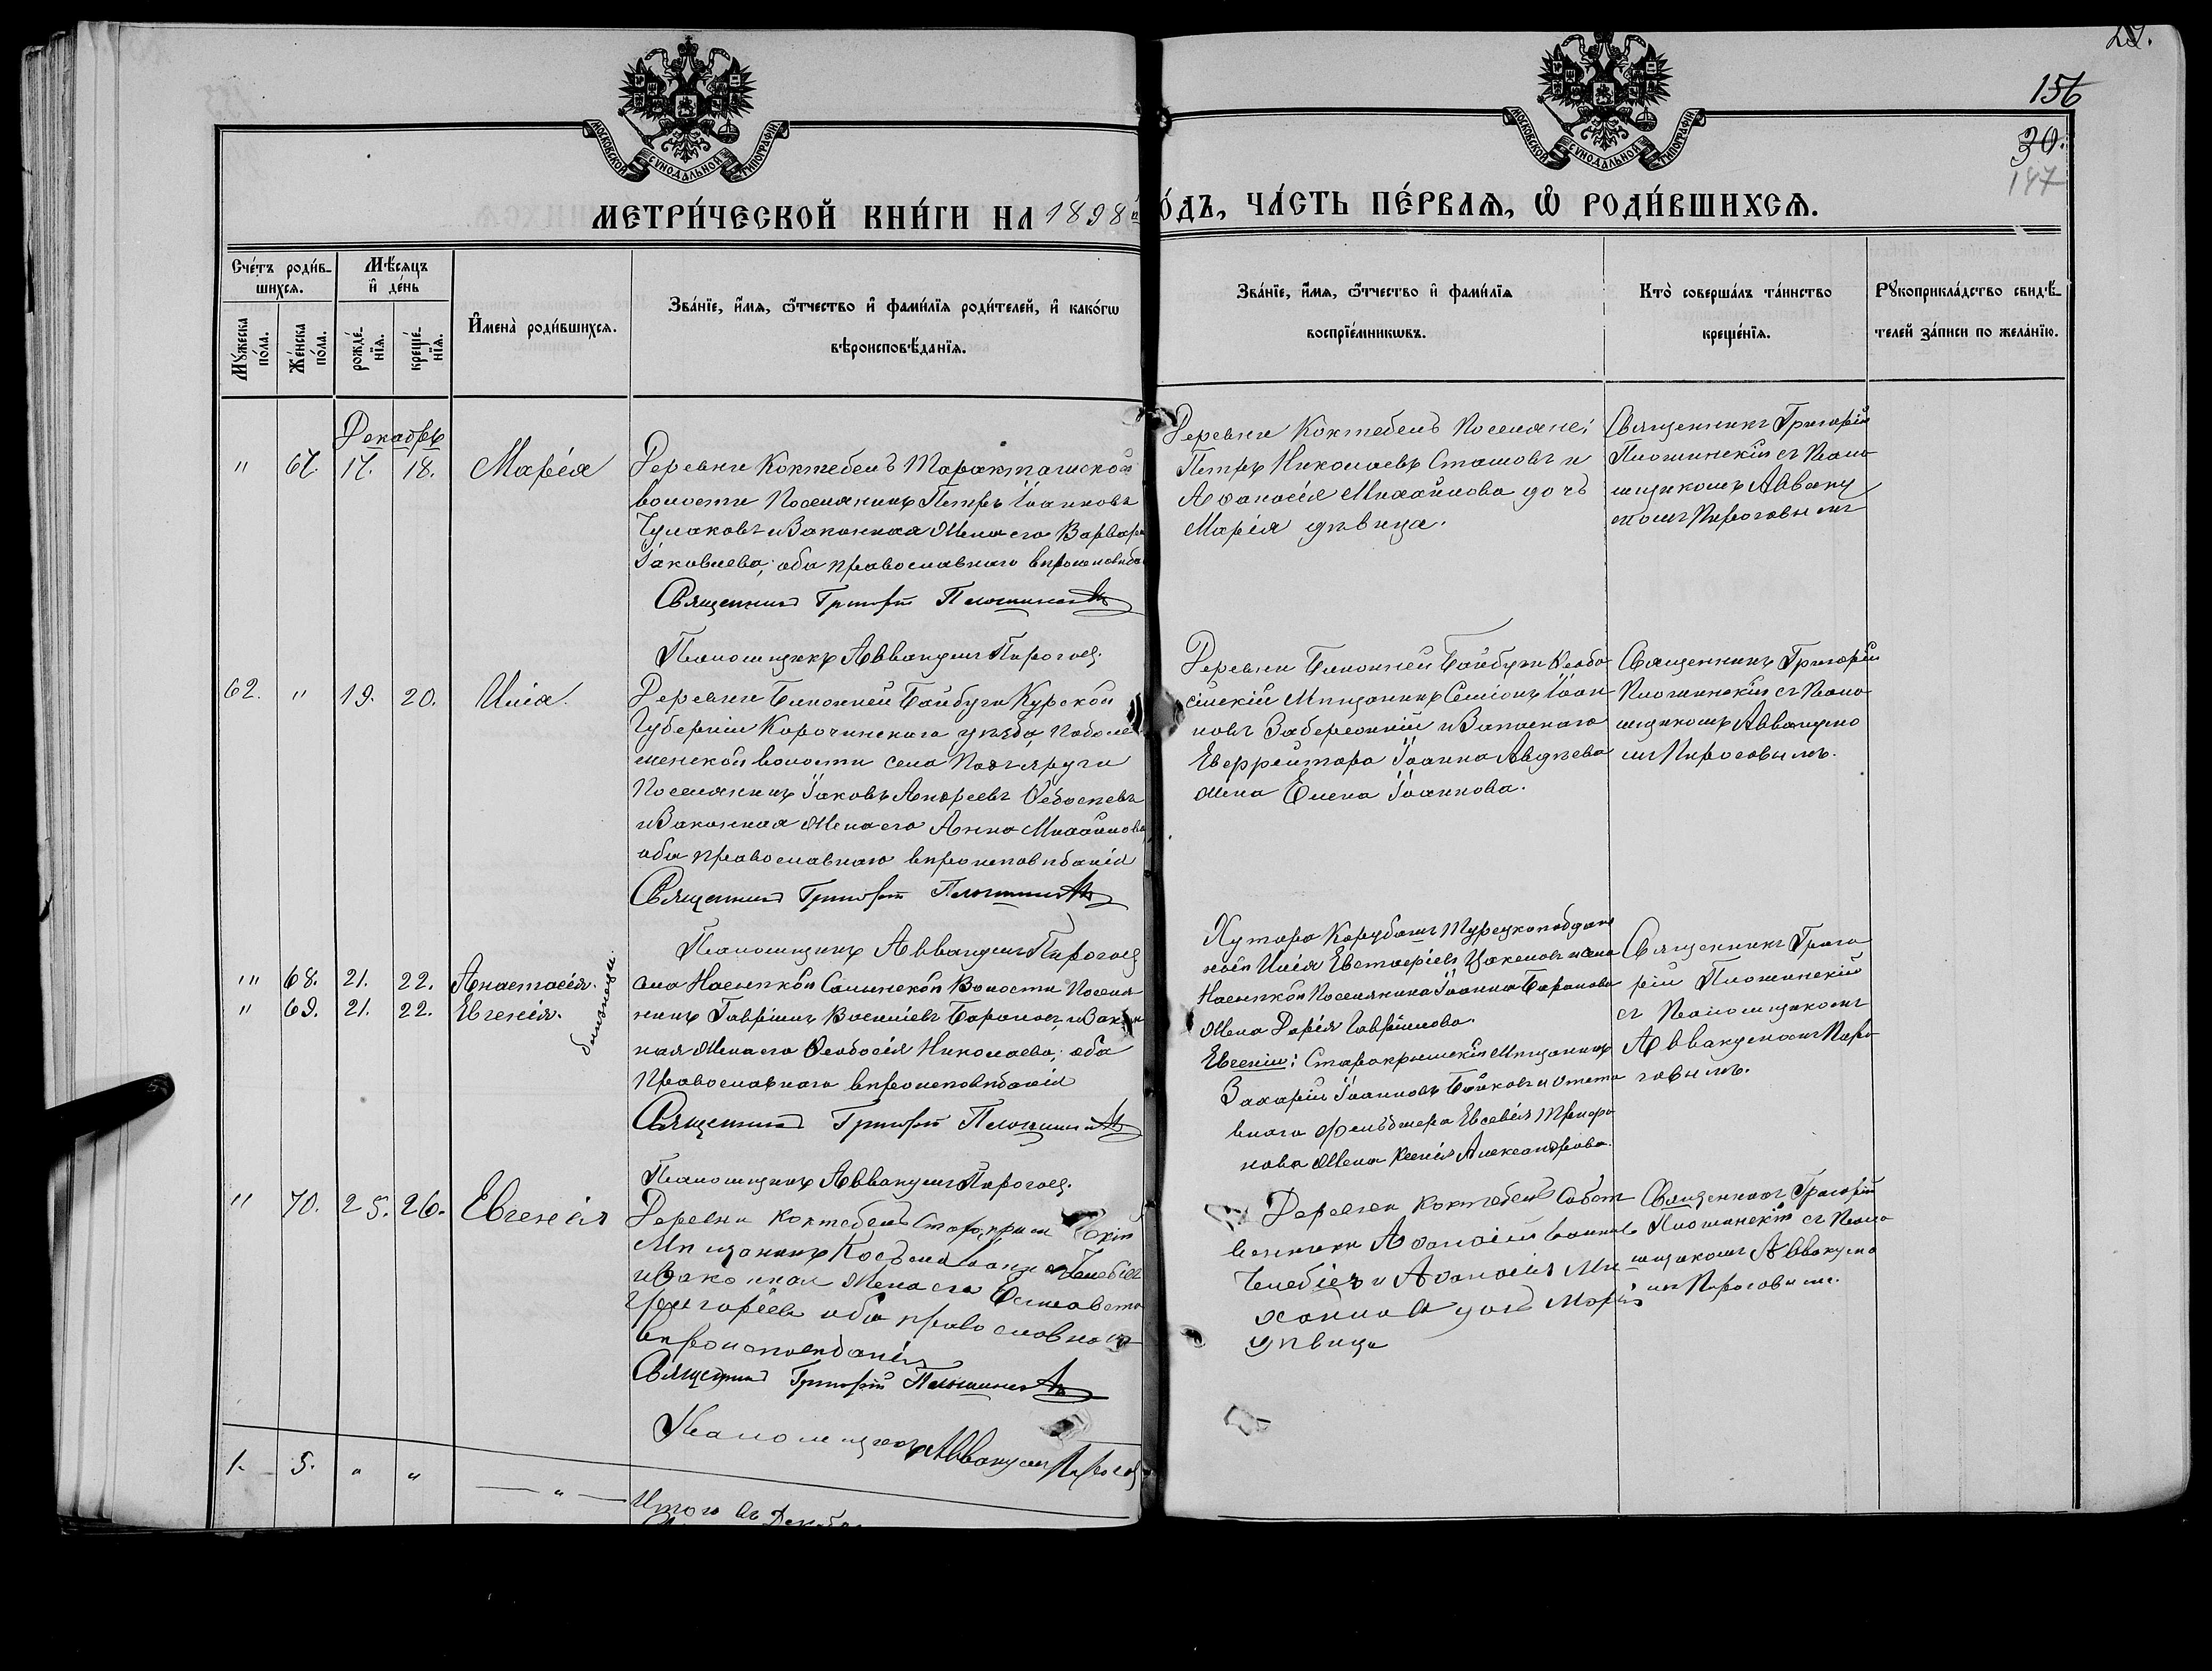 29.
156
30.
147
МОСКОВСКОЙ СѴНОДАЛЬНОЙ ТИПОГРАФІИ
МОСКОВСКОЙ СѴНОДАЛЬНОЙ ТИПОГРАФІИ
МЕТРИ́ЧЕСКОЙ КНИ́ГИ НА 1898 й
О́ДЪ, ЧА́СТЬ ПЕ́РВАѦ, Ѽ РОДИ́ВШИХСѦ.
Сче́тъ роди́в-
шихсѧ.
Мѣ́сѧцъ
и҆ де́нь
Мꙋ́жеска
по́ла.
Же́нска
по́ла.
рожде́-
нїѧ.
креще́-
нїѧ.
И҆мена̀ роди́вшихсѧ.
Зва́нїе, и҆́мѧ, ѻ҆́тчество и҆ фами́лїѧ роди́телей, и҆ како́гѡ
вѣроисповѣ́данїѧ.
Зва́нїе, и҆́мѧ, ѻ҆́тчество и҆ фами́лїѧ
воспрїе́мникѡвъ.
Кто̀ соверша́лъ та́инство
креще́нїѧ.
Рꙋкоприкла́дство свидѣ́-
телей за́писи по жела́нїю.
Декабрь
" 67. 17. 18. Марія
Деревни Коктебель Таракташской
волости Поселянинъ Петръ Іоанновъ
Чумаковъ и Законная Жена его Варвара
Іаковлева; оба православнаго вѣроисповѣда
Священникъ Григорій
Псаломщикъ Аввакумъ Пирогов
Деревни Коктебель Поселяне:
Петръ Николаевъ Сташовъ и
Аѳанасія Михайлова дочь
Марія дѣвица.
Священникъ Григорій
съ Псало
мщикомъ Авваку
момъ Пироговымъ
62. " 19. 20. Илія.
Деревни Ближней Байбуги Курской
Губерніи Корочинскаго уѣзда,
волости села Подъяруги
Поселянинъ Іаковъ Андреевъ
и Законная Жена его Анна Михайлова
оба православнаго вѣроисповѣданія
Священникъ Григорій
Псаломщикъ Аввакумъ Пирогов
Деревни Ближней Байбуги Ѳеодо
сійскій Мѣщанинъ Симеонъ Іоан
новъ и Запаснаго
Ефрейтора Іоанна Авдѣева
Жена Елена Іоаннова.
Священникъ Григорій
съ Псало
мщикомъ Аввакумо
мъ Пироговымъ.
" 68. 21. 22. Анастасія.
" 69. 21. 22. Евгенія.
близнецы
Села Насыпкой Салынской Волости Поселя
нинъ Гавріилъ Василіевъ Барановъ, и Закон
ная Жена его Ѳеодосія Николаева; оба
Православнаго вѣроисповѣданія
Священникъ Григорій
Псаломщикъ Аввакумъ Пирогов.
Хутора Турецкоподдан
ной Илія Евстаѳіевъ и села
Насыпкой Поселянина Іоанна Баранова
Жена Дарія Гавріилова.
Евгеніи: Старокрымскій Мѣщанинъ
Захарій Іоанновъ Байковъ и
внаго Фельдшера Евсевія
нова Жена Ксенія Александрова.
Священникъ Григо
рій
съ Псаломщикомъ
Аввакумомъ Пиро
говымъ.
" 70. 25. 26. Евгенія
Деревни Коктебель Старокрымскій
Мѣщанинъ Косьма Іоанновъ Челебіевъ
и Законная Жена его Елисавета
Григоріева оба православнаго
вѣроисповѣданія
Священникъ Григорій
Псаломщикъ Аввакумъ Пирогов
Деревни Коктебель
Аѳанасій Іоанновъ
Челебіевъ и Аѳанасія Ми
хайлова дочь Марія
дѣвица
Священникъ Григорій
съ Псало
мщикомъ Аввакумо
мъ Пироговымъ.
1. 5. " " — " —
Итого въ Декабрѣ